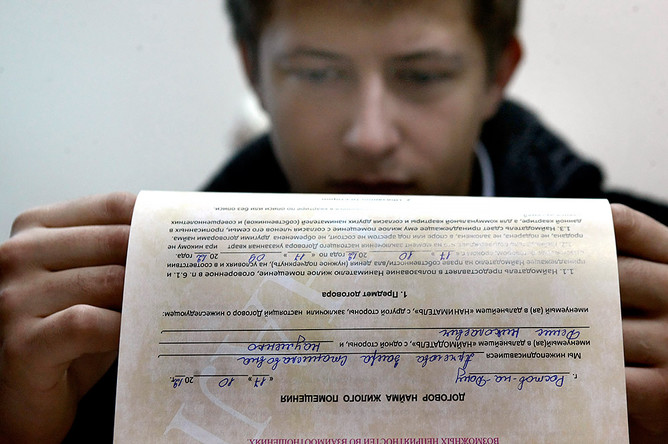 ВОЗМОЖНЫХ НЕПРИЯТНОСТЕЙ ВО ВЗАИМООТНОШЕНИЯХ
ДОГОВОР НАЙМА ЖИЛОГО ПОМЕЩЕНИЯ
г. Ростов-на-Дону « 17 » 10 20 12 г.
Мы нижеподписавшиеся
именуемый(ая) в дальнейшем «НАЙМОДАТЕЛЬ», с одной стороны, и
именуемый (ая) в дальнейшем «НАНИМАТЕЛЬ», с другой стороны, заключили настоящий Договор о нижеследующем:
1. Предмет договора
1.1. Наймодатель предоставляет в пользование Нанимателя жилое помещение, оговоренное в п. 6.1,
принадлежащее Наймодателю на праве собственности (нужное подчеркнуть), на условиях и в соответствии
« 17 » 10 20 12 года по « 17 » 09 20 года.
1.2. Наймодатель на момент заключения настоящего Договора указанная квартира никому не
продана, не подарена, не заложена, в споре или под арестом не состоит, не обременена другими договорами найма,
1.3. Наймодатель сдает принадлежащее ему жилое помещение с согласия членов его семьи, прописанных в
данной квартире, а для коммунальной квартиры и согласия других нанимателей (собственников) и совершеннолетних
в квартире по описи или без описи.